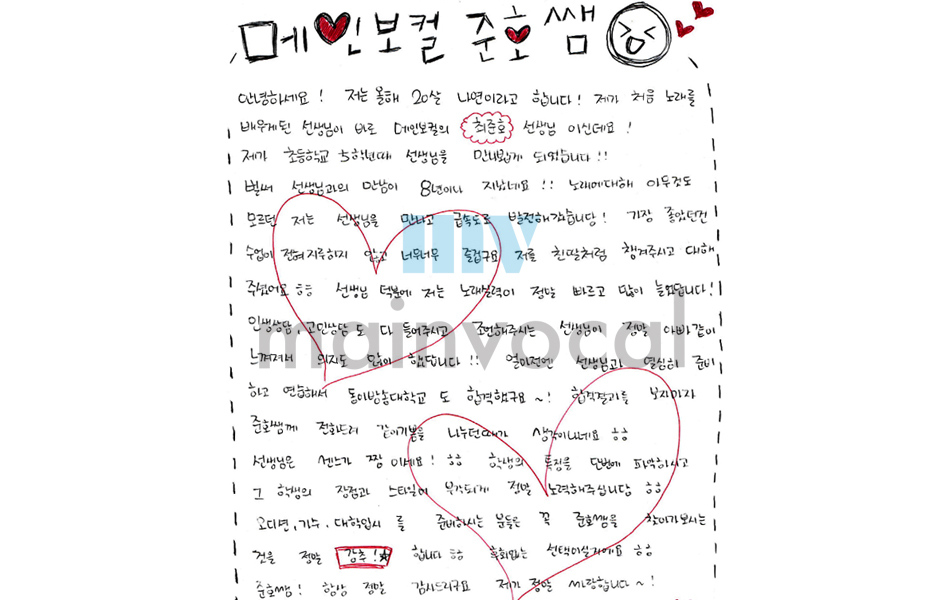 메인보컬 준호쌤
안녕하세요! 저는 올해 20살 나연이라고 합니다! 제가 처음 노래를
배우게된 선생님이 바로 메인보컬의 최준호 선생님 이신데요!
제가 초등학교 5학년때 선생님을 만나뵙게 되었습니다!!
벌써 선생님과의 만남이 8년이나 지났네요!! 노래에대해 아무것도
모르던 저는 선생님을 만나고 급속도로 발전해갔습니당! 가장 좋았던건
수업이 전혀 지루하지 않고 너무너무 즐겁구요 저를 친딸처럼 챙겨주시고 대해
주셨어요 ㅎㅎ 선생님 덕분에 저는 노래실력이 정말 빠르고 많이 늘었답니다!
인생상담, 고민상담도 다 들어주시고 조언해주시는 선생님이 정말 아빠같이
느껴져서 의지도 많이 했답니다!! 얼마전엔 선생님과 열심히 준비
하고 연습해서 동아방송대학교 도 합격했구요~! 합격결과를 보자마자
준호쌤께 전화드려 같이기쁨을 나누던때가 생각이나네요 ㅎㅎ
선생님은 센스가 짱 이세요! ㅎㅎ 학생의 특징을 단번에 파악하시고
그 학생의 장점과 스타일이 부각되게 정말 노력해주십니당 ㅎㅎ
오디션, 가수, 대학입시 를 준비하시는 분들은 꼭 준호쌤을 찾아가보시는
것을 정말 강추! 합니다 ㅎㅎ 후회없는 선택이실거에요 ㅎㅎ
준호쌤! 항상 정말 감사드리구요 제가 정말 사랑합니다~!
mv
mainvocal